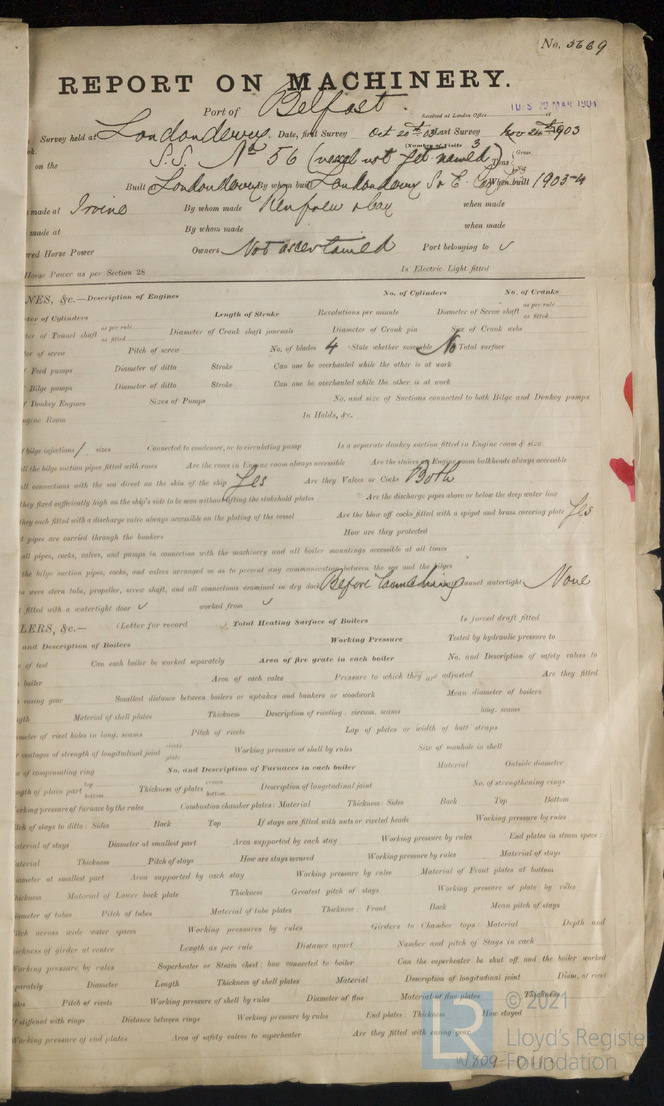 No. 5669
REPORT ON MACHINERY.
Port of Belfast
Received at London Office TUES 29 MAR 1904
Survey held at Londonderry. Date, first Survey Oct 20th 03 Last Survey Nov 24th 1903
(Number of Visits 3)
on the S.S. No 56 (vessel not yet named) Tons Gross
Built Londonderry By whom built Londonderry S & E. Coy When built 1903-4
made at Irvine By whom made Renfrew when made
made at By whom made when made
Horse Power Owners Not ascertained Port belonging to
Horse Power as per Section 28 Is Electric Light fitted
NES, &c.—Description of Engines No. of Cylinders No. of Cranks
of Cylinders Length of Stroke Revolutions per minute Diameter of Screw shaft as per rule as fitted
of Tunnel shaft as per rule as fitted Diameter of Crank shaft journals Diameter of Crank pin Size of Crank webs
of screw Pitch of screw No. of blades 4 State whether moveable No Total surface
Feed pumps Diameter of ditto Stroke Can one be overhauled while the other is at work
Bilge pumps Diameter of ditto Stroke Can one be overhauled while the other is at work
Donkey Engines Sizes of Pumps No. and size of Suctions connected to both Bilge and Donkey pumps
Engine Room In Holds, &c.
bilge injections 1 sizes Connected to condenser, or to circulating pump Is a separate donkey suction fitted in Engine room & size
all the bilge suction pipes fitted with roses Are the roses in Engine room always accessible Are the sluices on Engine room bulkheads always accessible
all connections with the sea direct on the skin of the ship Yes Are they Valves or Cocks Both
they fixed sufficiently high on the ship's side to be seen without lifting the stokehold plates Are the discharge pipes above or below the deep water line
they each fitted with a discharge valve always accessible on the plating of the vessel Are the blow off cocks fitted with a spigot and brass covering plate Yes
pipes are carried through the bunkers How are they protected
all pipes, cocks, valves, and pumps in connection with the machinery and all boiler mountings accessible at all times
the bilge suction pipes, cocks, and valves arranged so as to prevent any communication between the sea and the bilges
were stern tube, propeller, screw shaft, and all connections examined in dry dock Before launching tunnel watertight None
fitted with a watertight door worked from
LERS, &c.— (Letter for record Total Heating Surface of Boilers Is forced draft fitted
and Description of Boilers Working Pressure Tested by hydraulic pressure to
of test Can each boiler be worked separately Area of fire grate in each boiler No. and Description of safety valves to
boiler Area of each valve Pressure to which they are adjusted Are they fitted
easing gear Smallest distance between boilers or uptakes and bunkers or woodwork Mean diameter of boilers
Material of shell plates Thickness Description of riveting: circum. seams long. seams
of rivet holes in long. seams Pitch of rivets Lap of plates or width of butt straps
centages of strength of longitudinal joint rivets plate Working pressure of shell by rules Size of manhole in shell
of compensating ring No. and Description of Furnaces in each boiler Material Outside diameter
of plain part top bottom Thickness of plates crown bottom Description of longitudinal joint No. of strengthening rings
Working pressure of furnace by the rules Combustion chamber plates: Material Thickness: Sides Back Top Bottom
Pitch of stays to ditto: Sides Back Top If stays are fitted with nuts or riveted heads Working pressure by rules
Material of stays Diameter at smallest part Area supported by each stay Working pressure by rules End plates in steam space:
Material Thickness Pitch of stays How are stays secured Working pressure by rules Material of stays
Diameter at smallest part Area supported by each stay Working pressure by rules Material of Front plates at bottom
Thickness Material of Lower back plate Thickness Greatest pitch of stays Working pressure of plate by rules
Diameter of tubes Pitch of tubes Material of tube plates Thickness: Front Back Mean pitch of stays
Pitch across wide water spaces Working pressures by rules Girders to Chamber tops: Material Depth and
thickness of girder at centre Length as per rule Distance apart Number and pitch of Stays in each
Working pressure by rules Superheater or Steam chest: how connected to boiler Can the superheater be shut off and the boiler worked
separately Diameter Length Thickness of shell plates Material Description of longitudinal joint Diam. of rivet
Pitch of rivets Working pressure of shell by rules Diameter of flue Material of flue plates Thickness
If stiffened with rings Distance between rings Working pressure by rules End plates: Thickness How stayed
Working pressure of end plates Area of safety valves to superheater Are they fitted with easing gear
© 2021
LR
Lloyd's Registe
Foundation